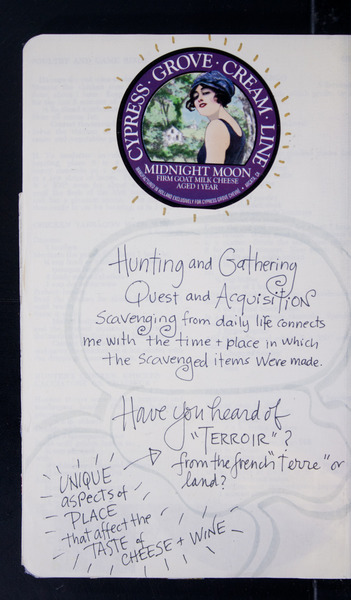 CYPRESS · GROVE · CREAM · LINE
MIDNIGHT MOON
FIRM GOAT MILK CHEESE
AGED 1 YEAR
MANUFACTURED IN HOLLAND EXCLUSIVELY FOR CYPRESS GROVE CHEVRE • ARCATA, CA
Hunting and Gathering
Quest and Acquisition
Scavenging from daily life connects
me with the time + place in which
the scavenged items were made.
Have you heard of
"TERROIR"?
from the french "terre" or
land?
UNIQUE
aspects of
PLACE
that affect the
TASTE of
CHEESE + WINE